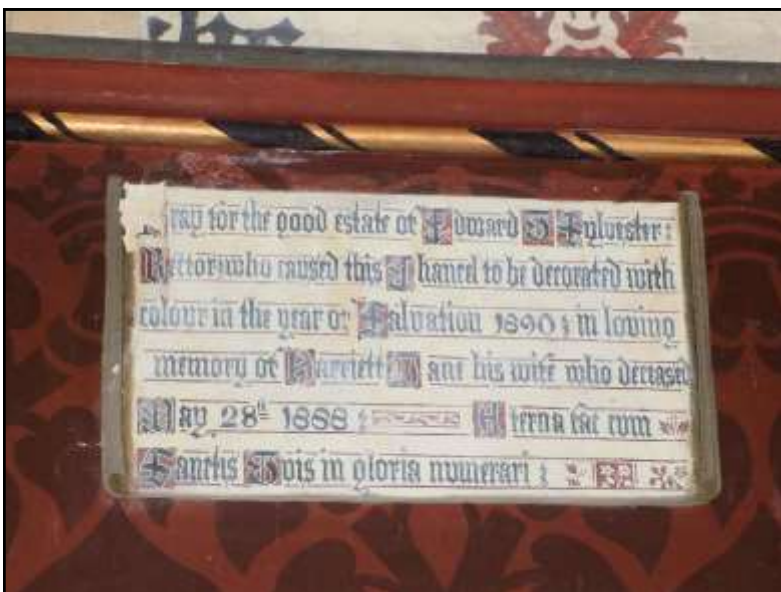 Pray for the good estate of Edward T Sylvester :
Rector: who caused this Chancel to be decorated with
colour in the year of Salvation 1890 : in loving
memory of Harriett Jane his wife who deceased
May 28th 1888 : Æterna fac cum
Sanctis Tuis in gloria numerari :